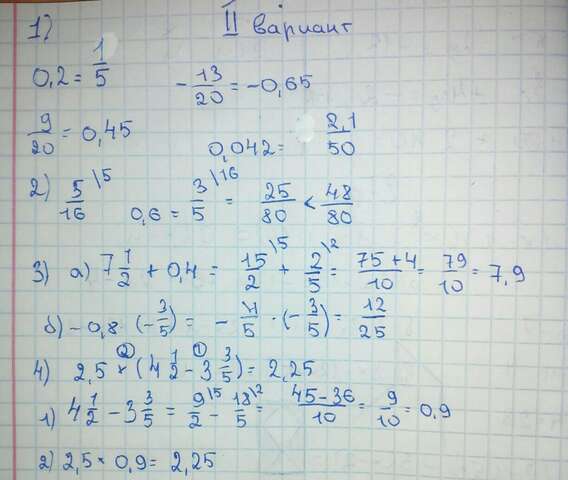 1) II вариант
0,2 = 1/5   - 13/20 = -0,65
9/20 = 0,45   0,042 = 2,1/50
2) 5/16 \5   0,6 = 3/5 \16 = 25/80 < 48/80
3) а) 7 1/2 + 0,4 = 15/2 \5 + 2/5 \2 = 75+4/10 = 79/10 = 7,9
б) -0,8 · (-3/5) = - 4/5 · (-3/5) = 12/25
4) 2,5 ② × (4 1/2 ① - 3 3/5) = 2,25
1) 4 1/2 - 3 3/5 = 9/2 \5 - 18/5 \2 = 45-36/10 = 9/10 = 0,9
2) 2,5 × 0,9 = 2,25